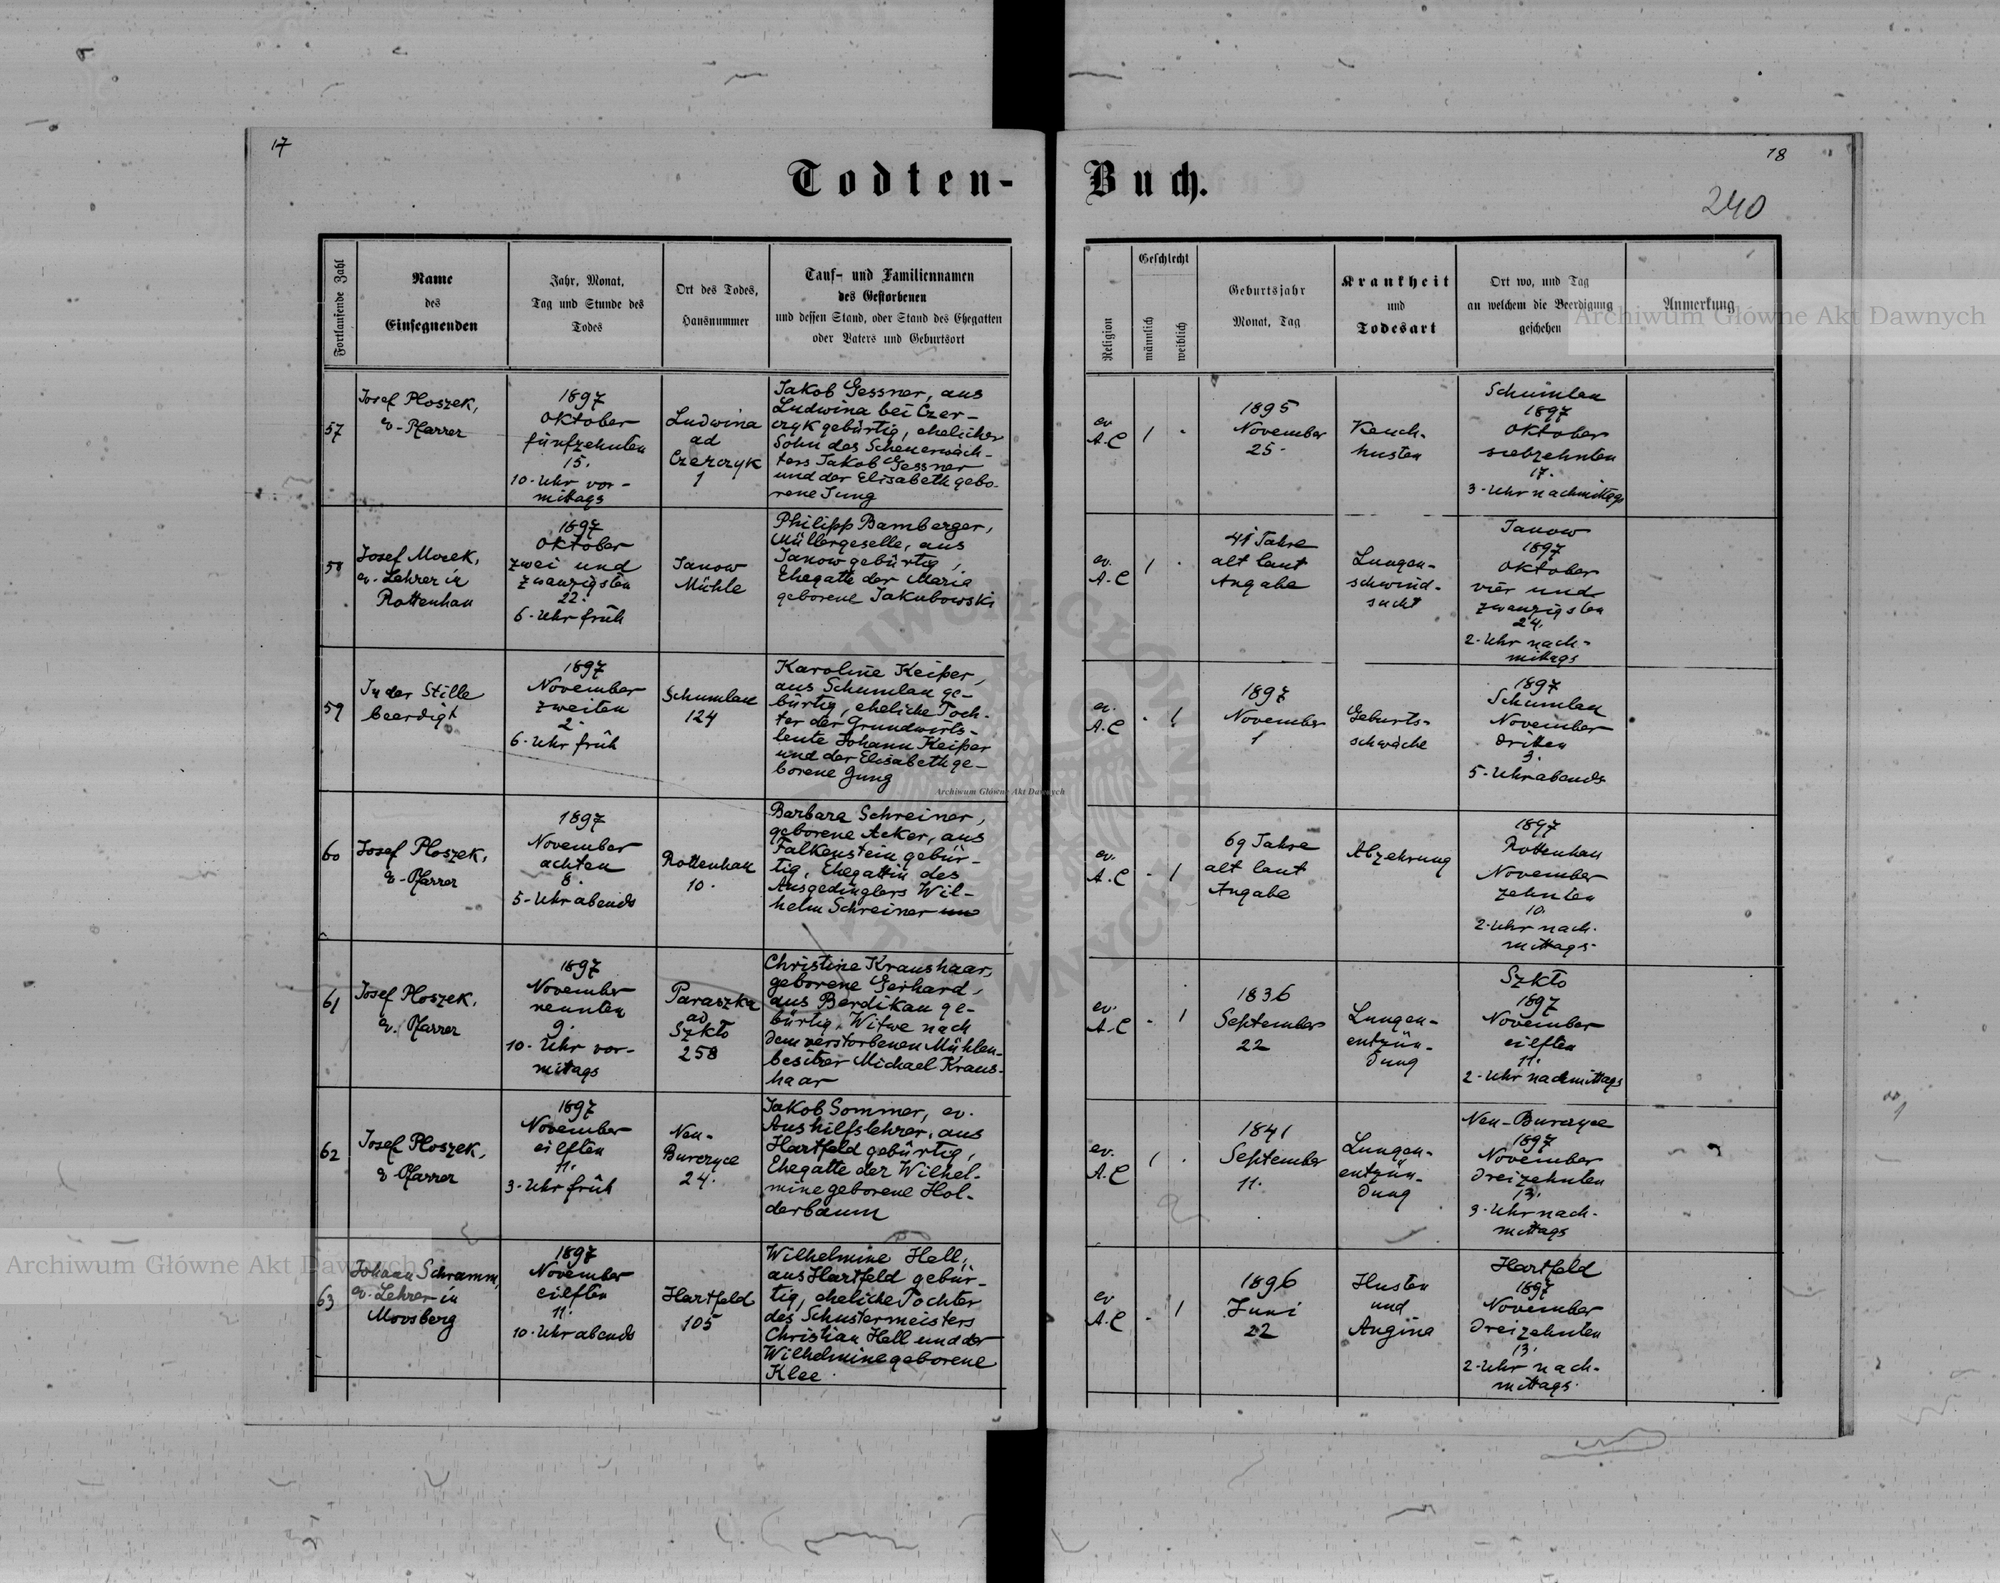 17
18
Todten-Buch.
240
Fortlaufende Zahl
Name
des
Einsegnenden
Jahr, Monat,
Tag und Stunde des
Todes
Ort des Todes,
Hausnummer
Tauf- und Familiennamen
des Gestorbenen
und dessen Stand, oder Stand des Ehegatten
oder Vaters und Geburtsort
Religion
Geschlecht
männlich
weiblich
Geburtsjahr
Monat, Tag
Krankheit
und
Todesart
Ort wo, und Tag
an welchem die Beerdigung
geschehen
Anmerkung
Archiwum Główne Akt Dawnych
57
Josef Ploszek,
ev. Pfarrer
1897
Oktober
fünfzehnten
15.
10. Uhr vor-
mittags
Ludwina
ad
Czerczyk
1
Jakob Gessner, aus
Ludwina bei Czer-
czyk gebürtig, ehelicher
Sohn des Scheuerwäch-
ters Jakob Gessner
und der Elisabeth gebo-
rene Jung
ev.
A.C
1
1895
November
25.
Keuch-
husten
Schumlau
1897
Oktober
siebzehnten
17.
3. Uhr nachmittags
58
Josef Mocek,
ev. Lehrer in
Rottenhan
1897
Oktober
zwei und
zwanzigsten
22.
6. Uhr früh
Janow
Mühle
Philipp Bamberger,
Müllergeselle, aus
Janow gebürtig,
Ehegatte der Maria
geborene Jakubowski
ev.
A.C
1
41 Jahre
alt laut
Angabe
Lungen-
schwind-
sucht
Janow
1897
Oktober
vier und
zwanzigsten
24.
2. Uhr nach-
mittags
59
In der Stille
beerdigt
1897
November
zweiten
2.
6. Uhr früh
Schumlau
124
Karoline Keiper,
aus Schumlau ge-
bürtig, eheliche Toch-
ter der Grundwirts-
leute Johann Keiper
und der Elisabeth ge-
borene Jung
ev.
A.C
1
1897
November
1
Geburts-
schwäche
1897
Schumlau
November
dritten
3.
5. Uhr abends
Archiwum Główne Akt Dawnych
60
Josef Ploszek,
ev. Pfarrer
1897
November
achten
8.
5. Uhr abends
Rottenhan
10.
Barbara Schreiner,
geborene Acker, aus
Falkenstein gebür-
tig, Ehegattin des
Ausgedinglers Wil-
helm Schreiner
ev.
A.C
1
69 Jahre
alt laut
Angabe
Abzehrung
1897
Rottenhan
November
zehnten
10.
2. Uhr nach-
mittags
61
Josef Ploszek,
ev. Pfarrer
1897
November
neunten
9.
10. Uhr vor-
mittags
Paraszka
ad
Szkło
258
Christine Kraushaar,
geborene Gerhard,
aus Berdikau ge-
bürtig, Witwe nach
dem verstorbenen Mühlen-
besitzer Michael Kraus-
haar
ev.
A.C
1
1836
September
22
Lungen-
entzün-
dung
Szkło
1897
November
eilften
11.
2. Uhr nachmittags
62
Josef Ploszek,
ev. Pfarrer
1897
November
eilften
11.
3. Uhr früh
Neu-
Burczyce
24.
Jakob Sommer, ev.
Aushilfslehrer, aus
Hartfeld gebürtig,
Ehegatte der Wilhel-
mine geborene Hol-
derbaum
ev.
A.C
1
1841
September
11.
Lungen-
entzün-
dung
Neu-Burczyce
1897
November
dreizehnten
13.
3. Uhr nach-
mittags
63
Johann Schramm,
ev. Lehrer in
Moosberg
1897
November
eilften
11.
10. Uhr abends
Hartfeld
105
Wilhelmine Hell,
aus Hartfeld gebür-
tig, eheliche Tochter
des Schustermeisters
Christian Hell und der
Wilhelmine geborene
Klee.
ev
A.C
1
1896
Juni
22
Husten
und
Angina
Hartfeld
1897
November
dreizehnten
13.
2. Uhr nach-
mittags.
Archiwum Główne Akt Dawnych